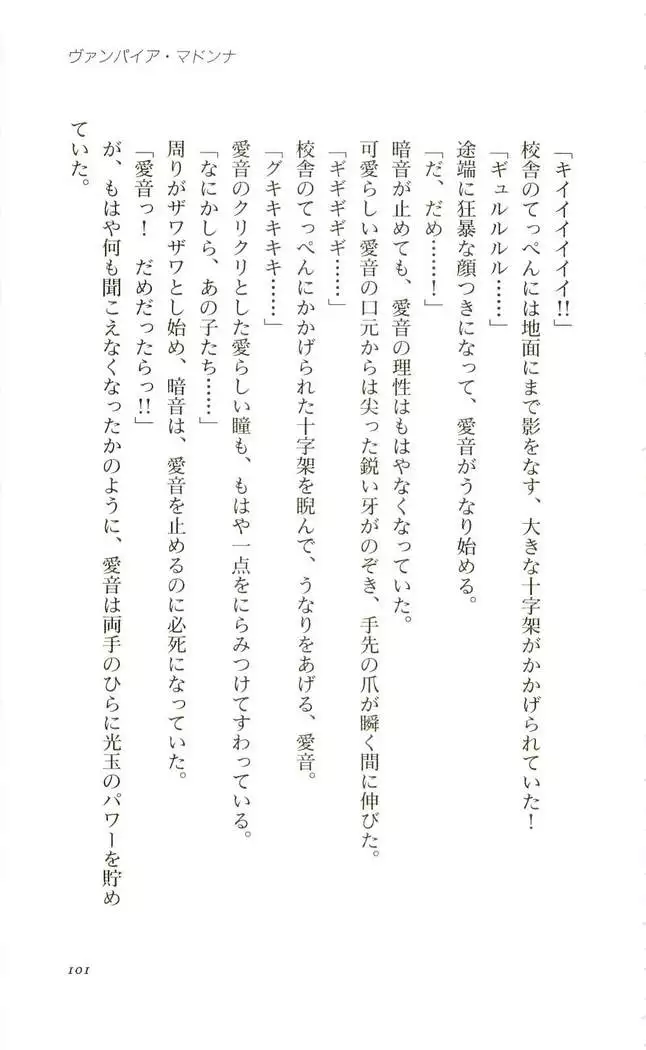 ヴァンパイア・マドンナ
「キイイイイイイ!!」
校舎のてっぺんには地面にまで影をなす、大きな十字架がかかげられていた!
「ギュルルルル……」
途端に狂暴な顔つきになって、愛音がうなり始める。
「だ、だめ……!」
暗音が止めても、愛音の理性はもはやなくなっていた。
可愛らしい愛音の口元からは尖った鋭い牙がのぞき、手先の爪が瞬く間に伸びた。
「ギギギギギ……」
校舎のてっぺんにかかげられた十字架を睨んで、うなりをあげる、愛音。
「グキキキキキ……」
愛音のクリクリとした愛らしい瞳も、もはや一点をにらみつけてすわっている。
「なにかしら、あの子たち……」
周りがザワザワとし始め、暗音は、愛音を止めるのに必死になっていた。
「愛音っ! だめだったらっ!!」
が、もはや何も聞こえなくなったかのように、愛音は両手のひらに光玉のパワーを貯め
ていた。
101